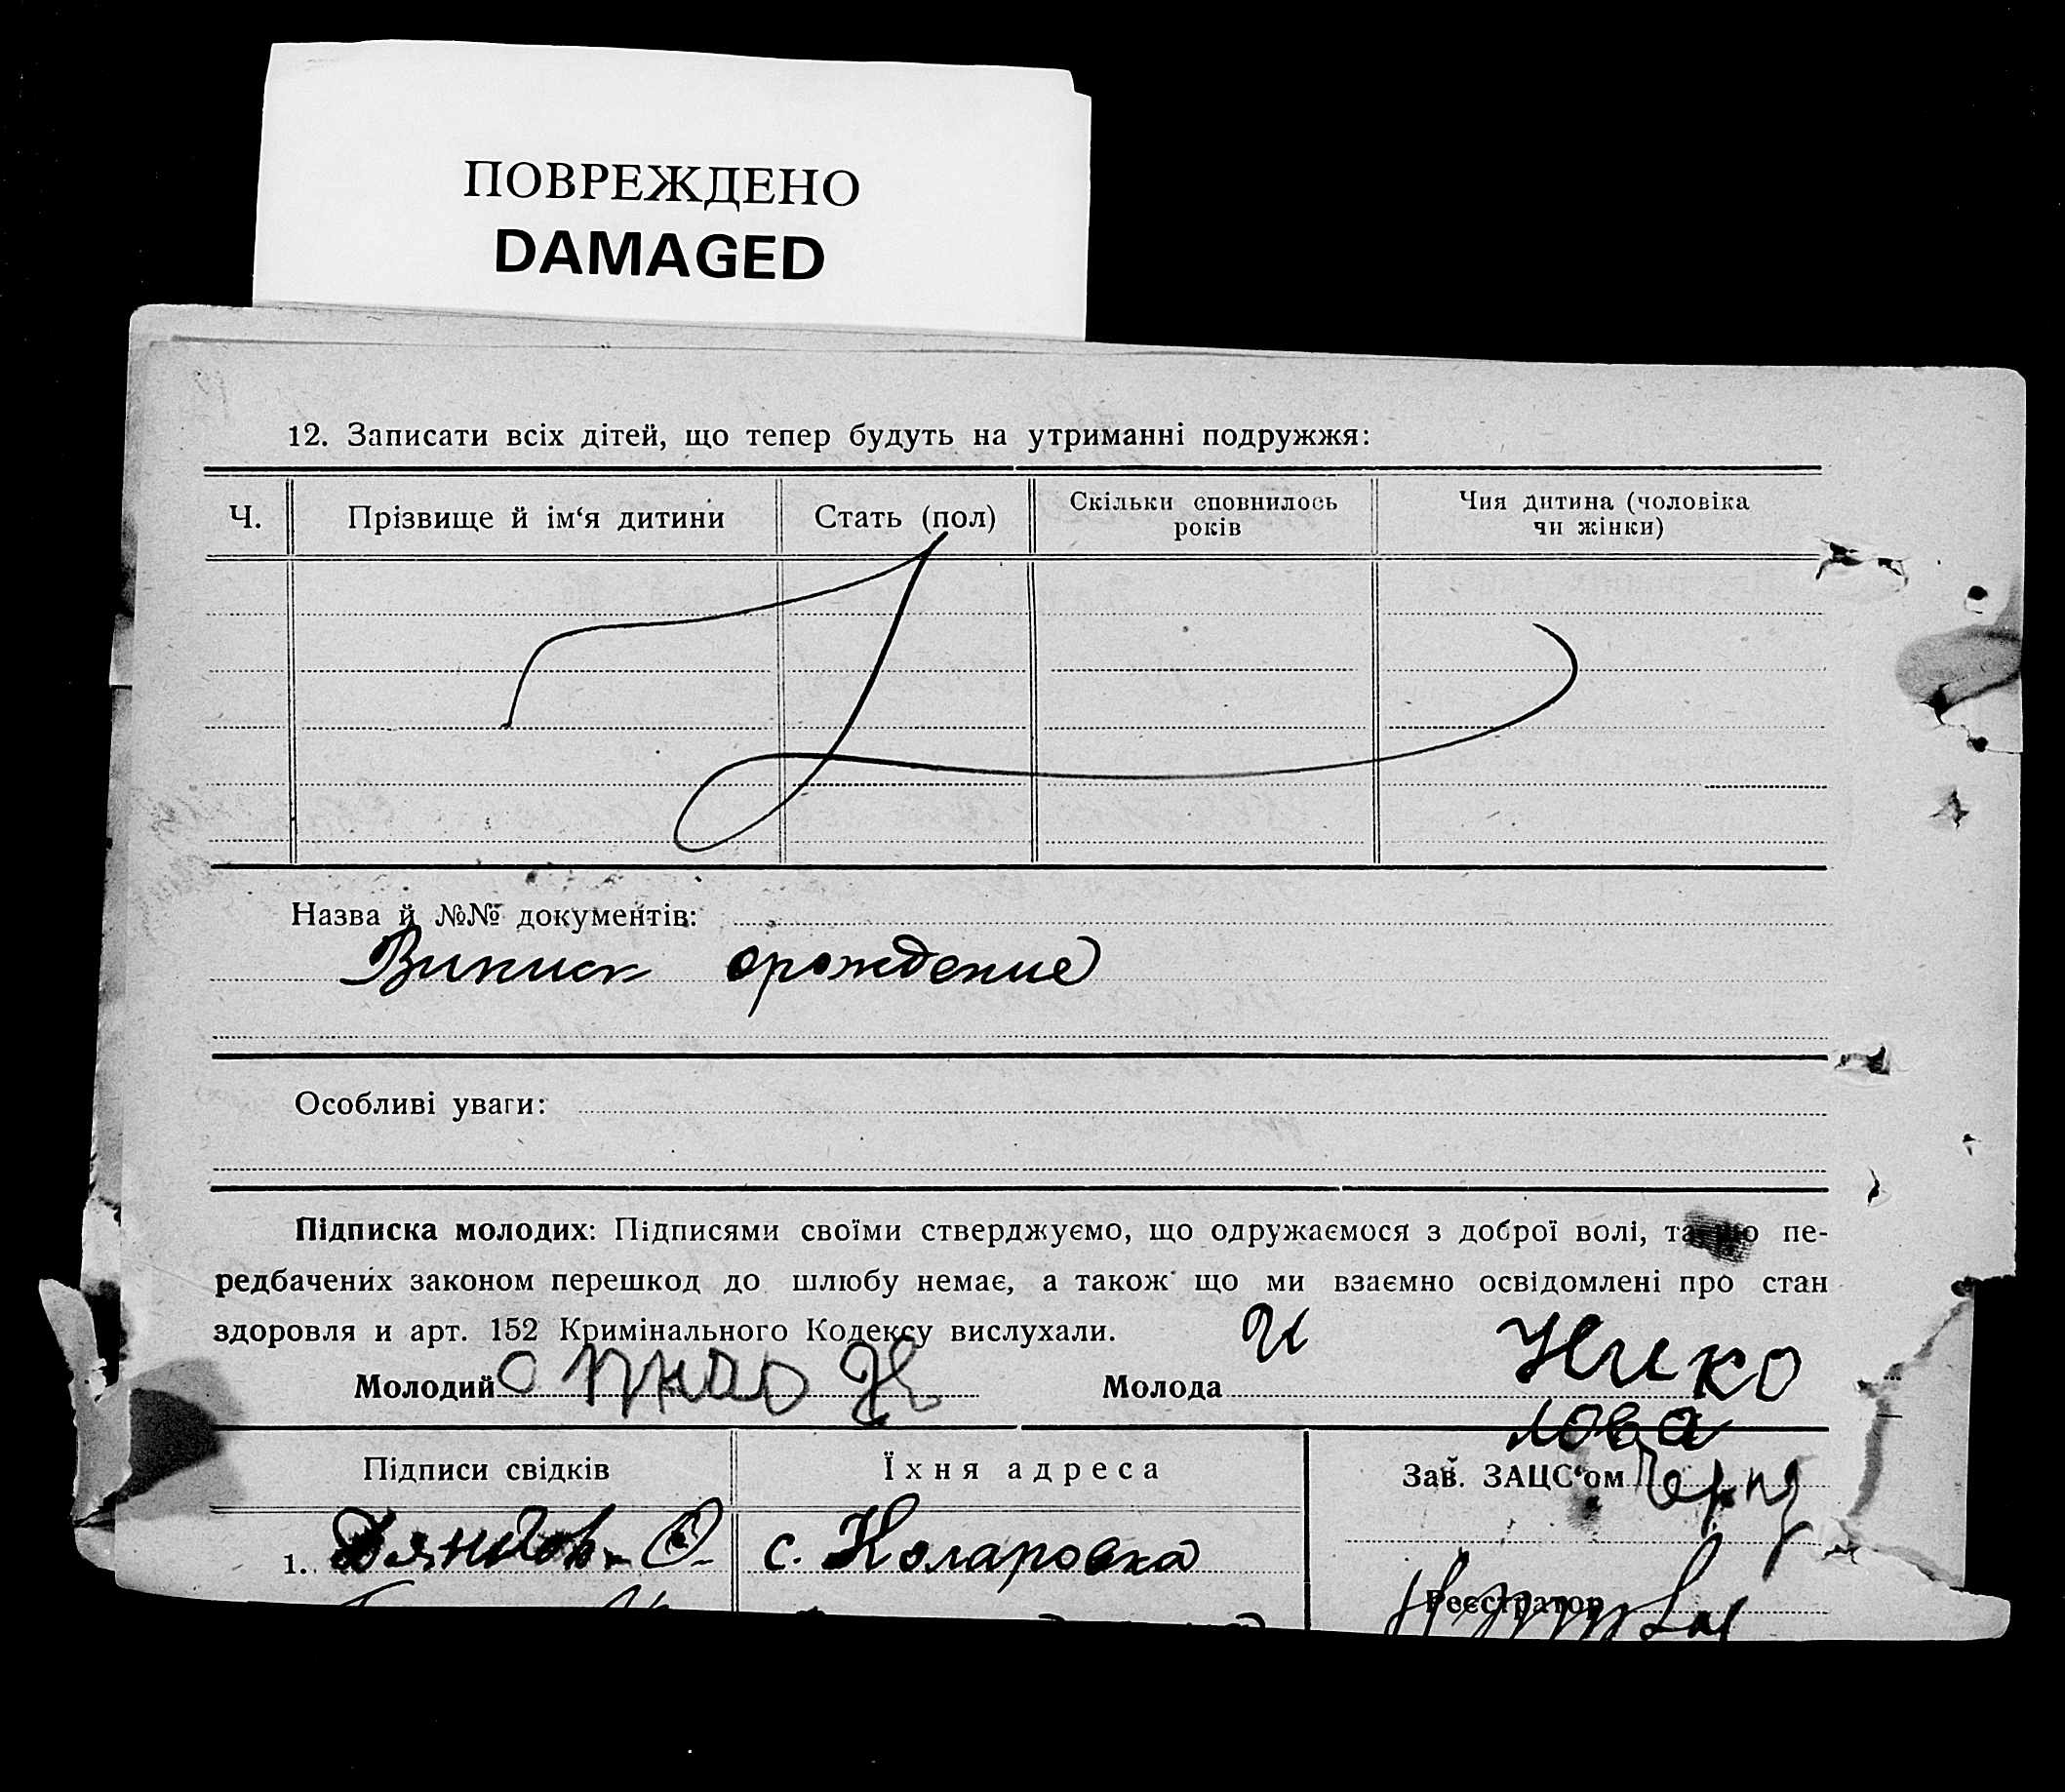 ПОВРЕЖДЕНО
DAMAGED
12. Записати всіх дітей, що тепер будуть на утриманні подружжя:
Ч. Прізвище й ім‘я дитини Стать (пол) Скільки сповнилось років Чия дитина (чоловіка чи жінки)
Назва й №№ документів:
Виписк орождение
Особливі уваги:
Підписка молодих: Підписями своїми стверджуємо, що одружаємося з доброї волі, та що пе-
редбачених законом перешкод до шлюбу немає, а також що ми взаємно освідомлені про стан
здоровля и арт. 152 Кримінального Кодексу вислухали.
Молодий Молода И Нико
лова
Підписи свідків Їхня адреса Зав. ЗАЦС‘ом
1. с. Коларовка
Реєстратор